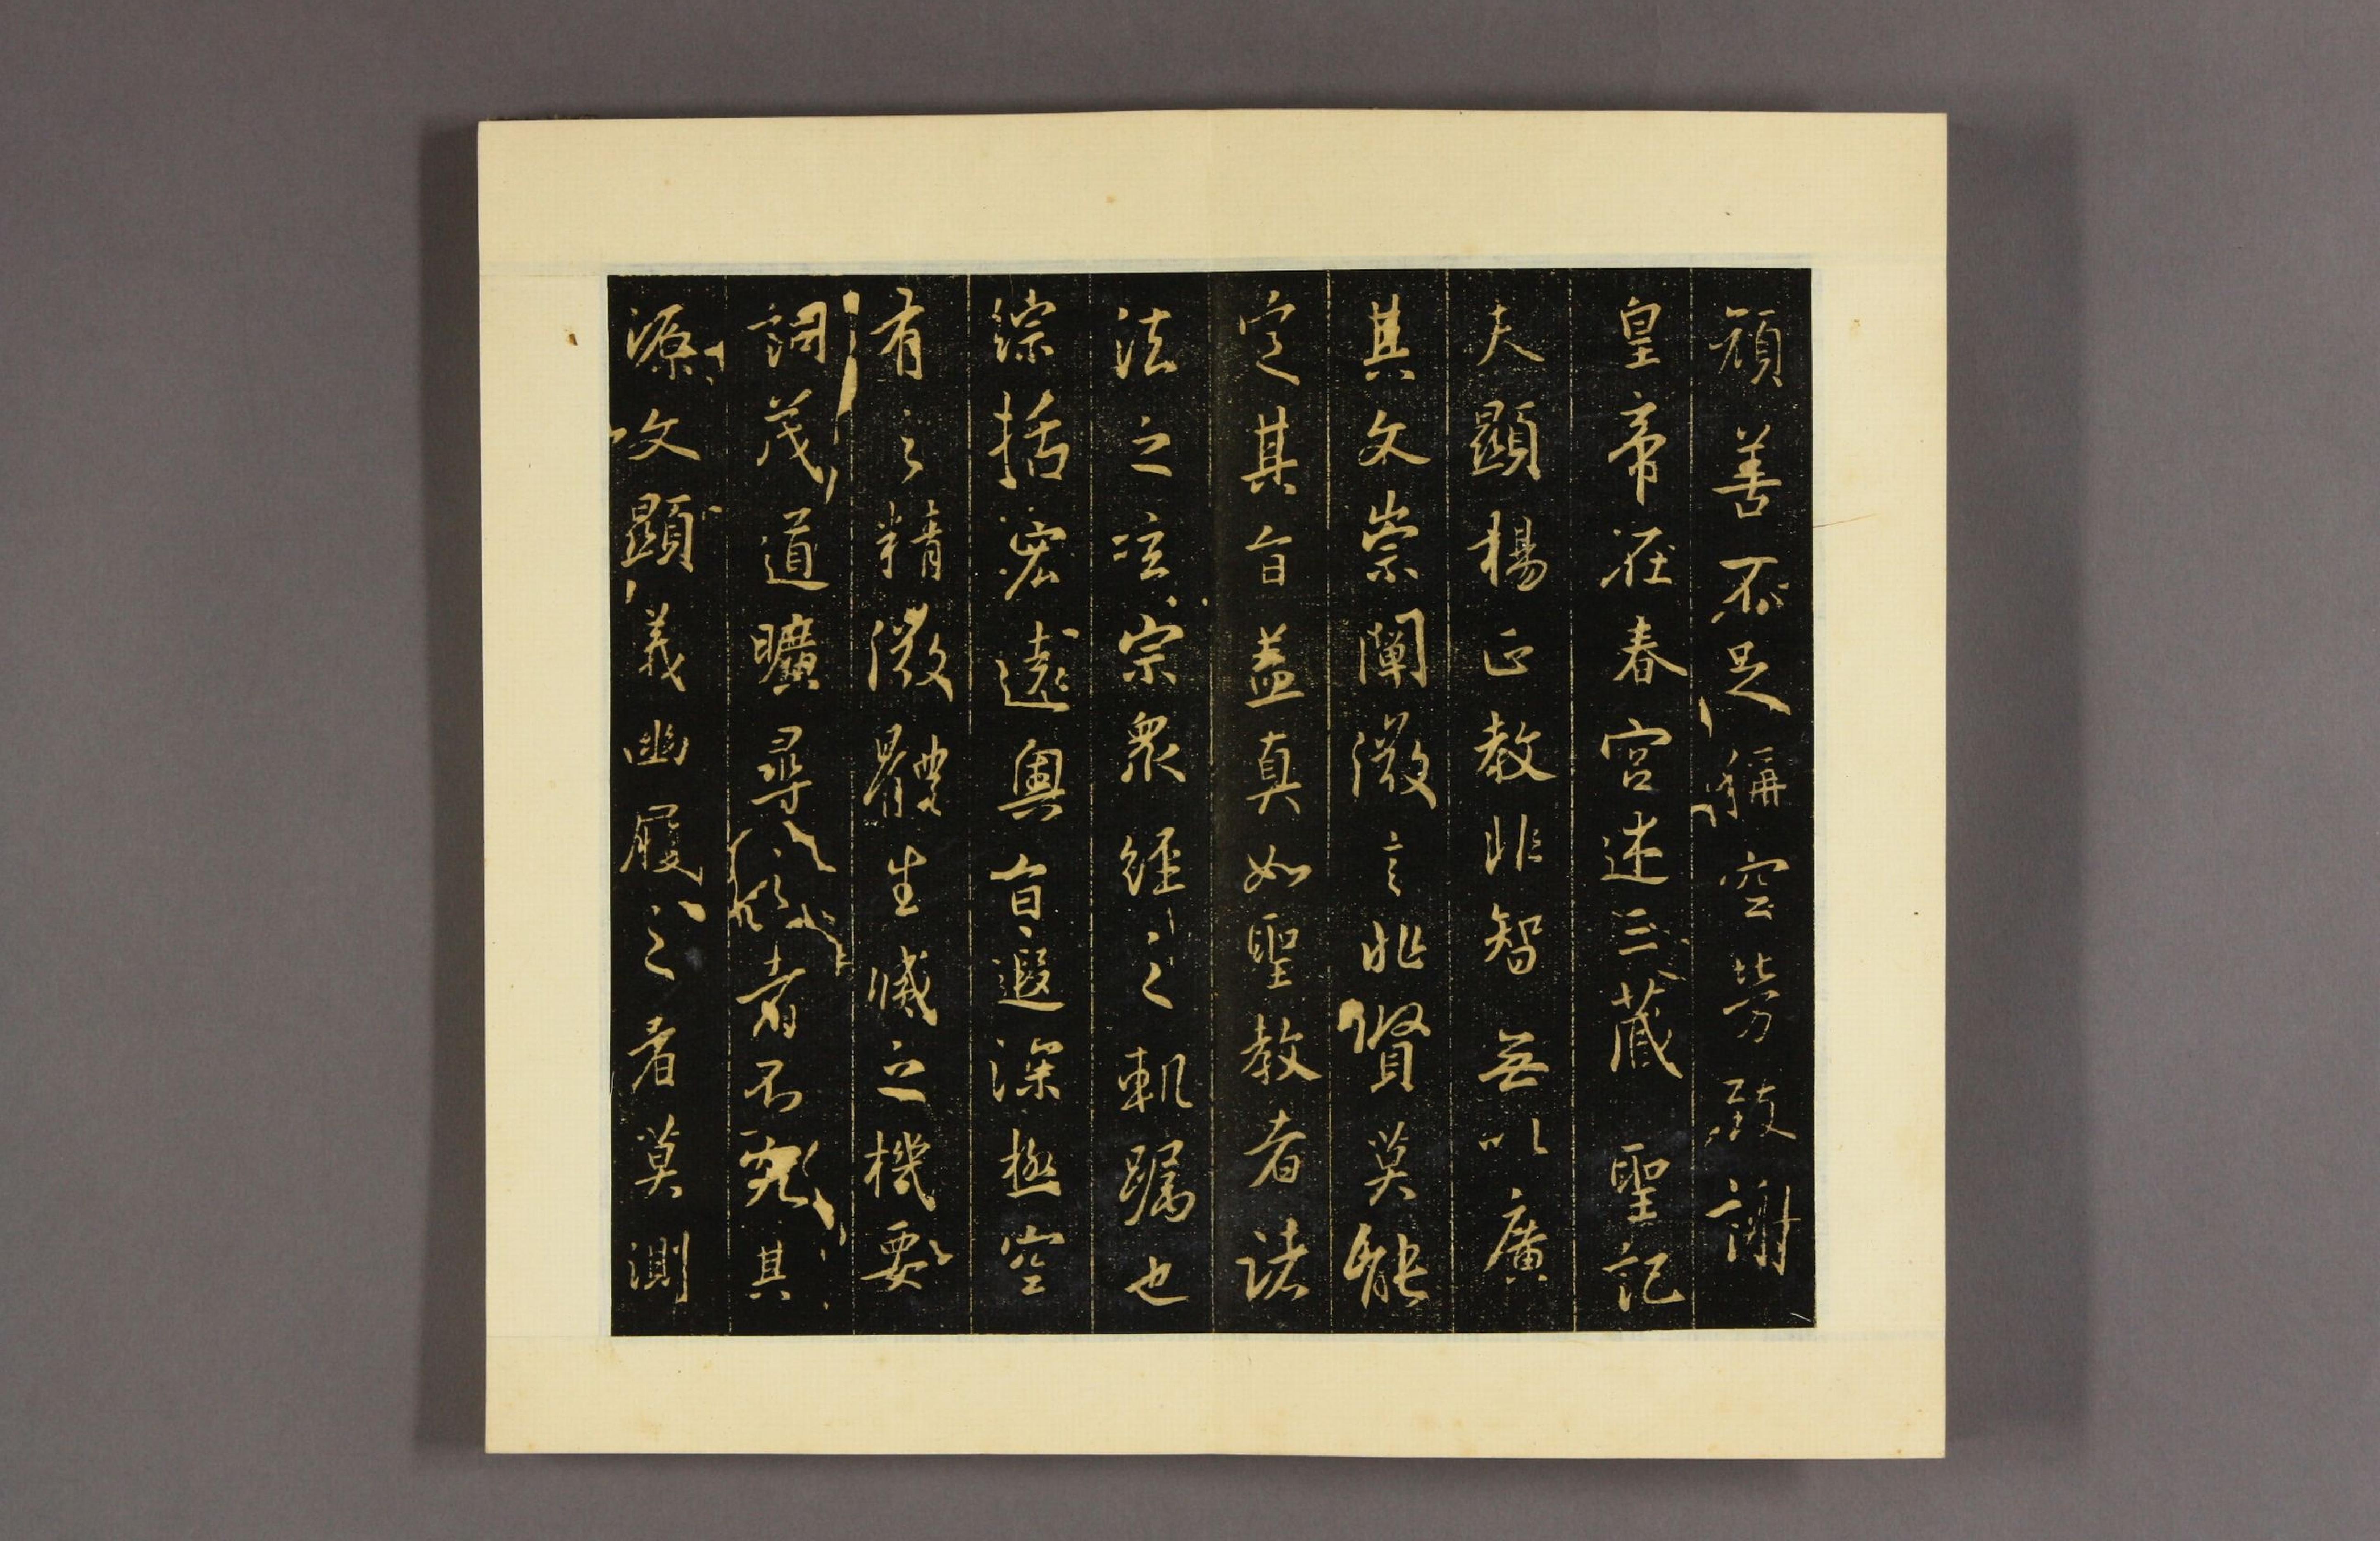 頑善不足稱空勞致謝
皇帝在春宮述三藏聖記
夫顯揚正教非智無以廣
其文崇闡微言非賢莫能
定其旨蓋真如聖教者諸
法之玄宗衆經之軌躅也
綜括宏遠奧旨遐深極空
有之精微體生滅之機要
詞茂道曠尋之者不究其
源文顯義幽履之者莫測